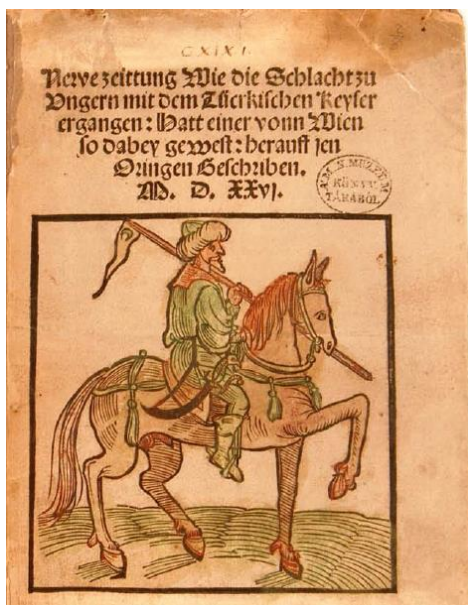 CXIXI
Nerve zeittung Wie die Schlacht zu
Vngern mit dem Tuerkischen Keyser
ergangen: Hatt einer vonn Wien
so dabey gewest: herauff jen
Oringen Geschriben.
M. D. XXvj.
M. N. MUZEUM
KÖNYV
TÁRÁBÓL